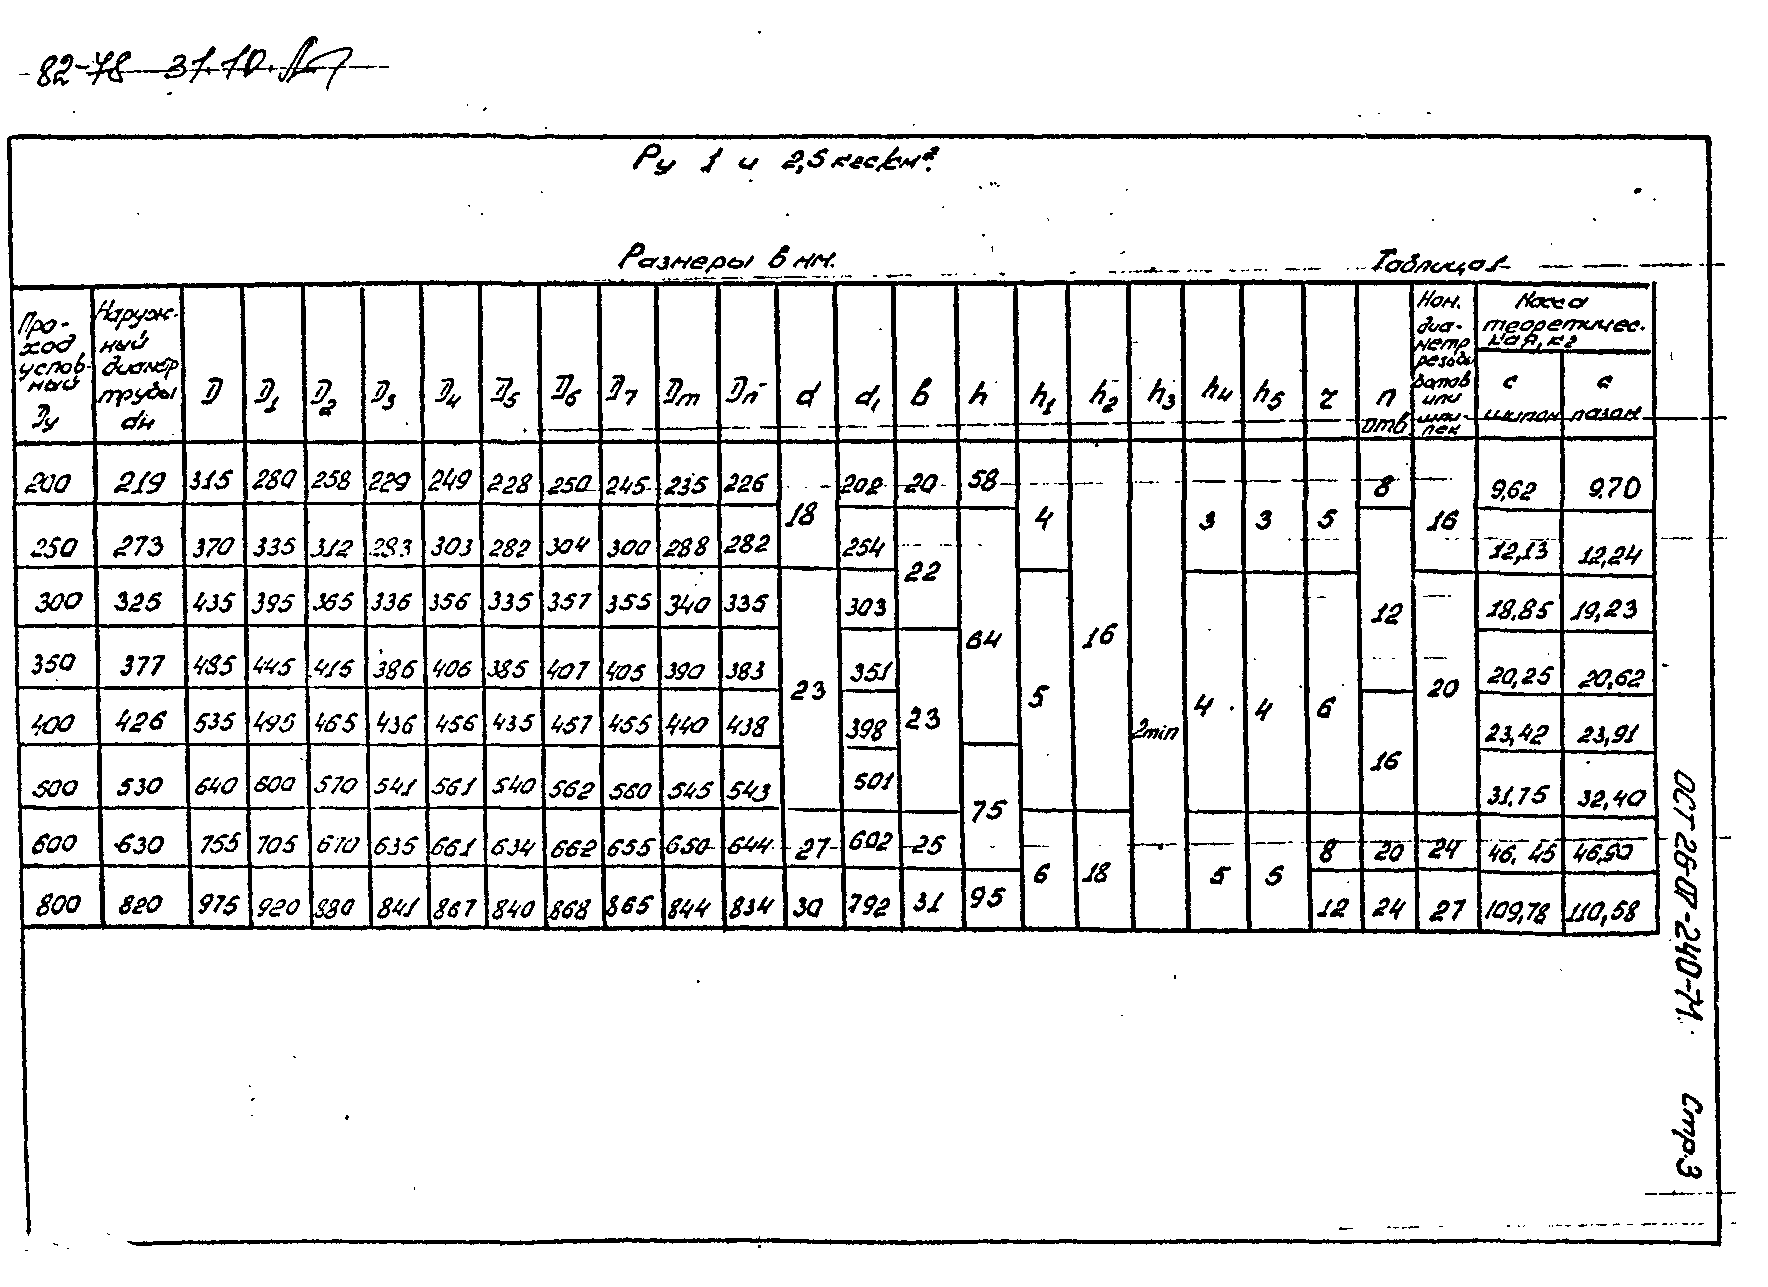 82-78 31.10.
Ру 1 и 2,5 кгс/см².
Размеры в мм. Таблица 1
Про-ход услов-ный Ду | Наруж-ный диаметр трубы dн | D | D1 | D2 | D3 | D4 | D5 | D6 | D7 | Dm | Dп | d | d1 | b | h | h1 | h2 | h3 | h4 | h5 | r | n отв. | Ном. диа-метр резьбы болтов или шпи-лек | Масса теоретичес-кая, кг | с шипом | с пазом
200 219 315 280 258 229 249 228 250 245 235 226 18 202 20 58 4 16 2min 3 3 5 8 16 9,62 9,70
250 273 370 335 312 283 303 282 304 300 288 282 254 22 64 12 12,13 12,24
300 325 435 395 365 336 356 335 357 355 340 335 23 303 5 4 4 6 20 18,85 19,23
350 377 485 445 415 386 406 385 407 405 390 383 351 23 20,25 20,62
400 426 535 495 465 436 456 435 457 455 440 438 398 16 23,42 23,91
500 530 640 600 570 541 561 540 562 560 545 543 501 75 31,75 32,40
600 630 755 705 670 635 661 634 662 655 650 644 27 602 25 6 18 5 5 8 20 24 46,45 46,90
800 820 975 920 880 841 867 840 868 865 844 834 30 792 31 95 12 24 27 109,78 110,58
ОСТ 26-01-240-71 Стр.3